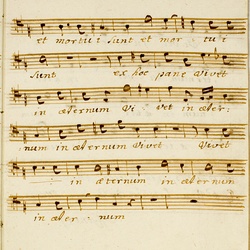 et mortui sunt et mor tui
sunt ex hoc pane Vivet
in æternum Vi vet in æter:
num in æternum Vivet Vivet
in æternum in æternum
in æter: num